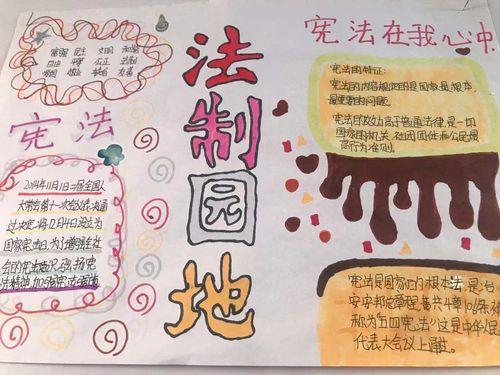 富强 民主 文明 和谐
自由 平等 公正 法制
爱国 敬业 诚信 友善
宪法
2014年11月1日
大常会第十一次会议
过决定,将12月4日设立为
国家宪法日
法制园地
宪法在我心中
宪法的特征:
宪法的内容规定的是国家最根本
最重要的问题
宪法的效力高于普通法律,是一切
国家的机关,社团团体和公民最
高行为准则。
宪法是国家的根本法,是治
安邦 章程,黄共4章106条
称为"五四宪法"这是中华人民
代表大会以上通过。